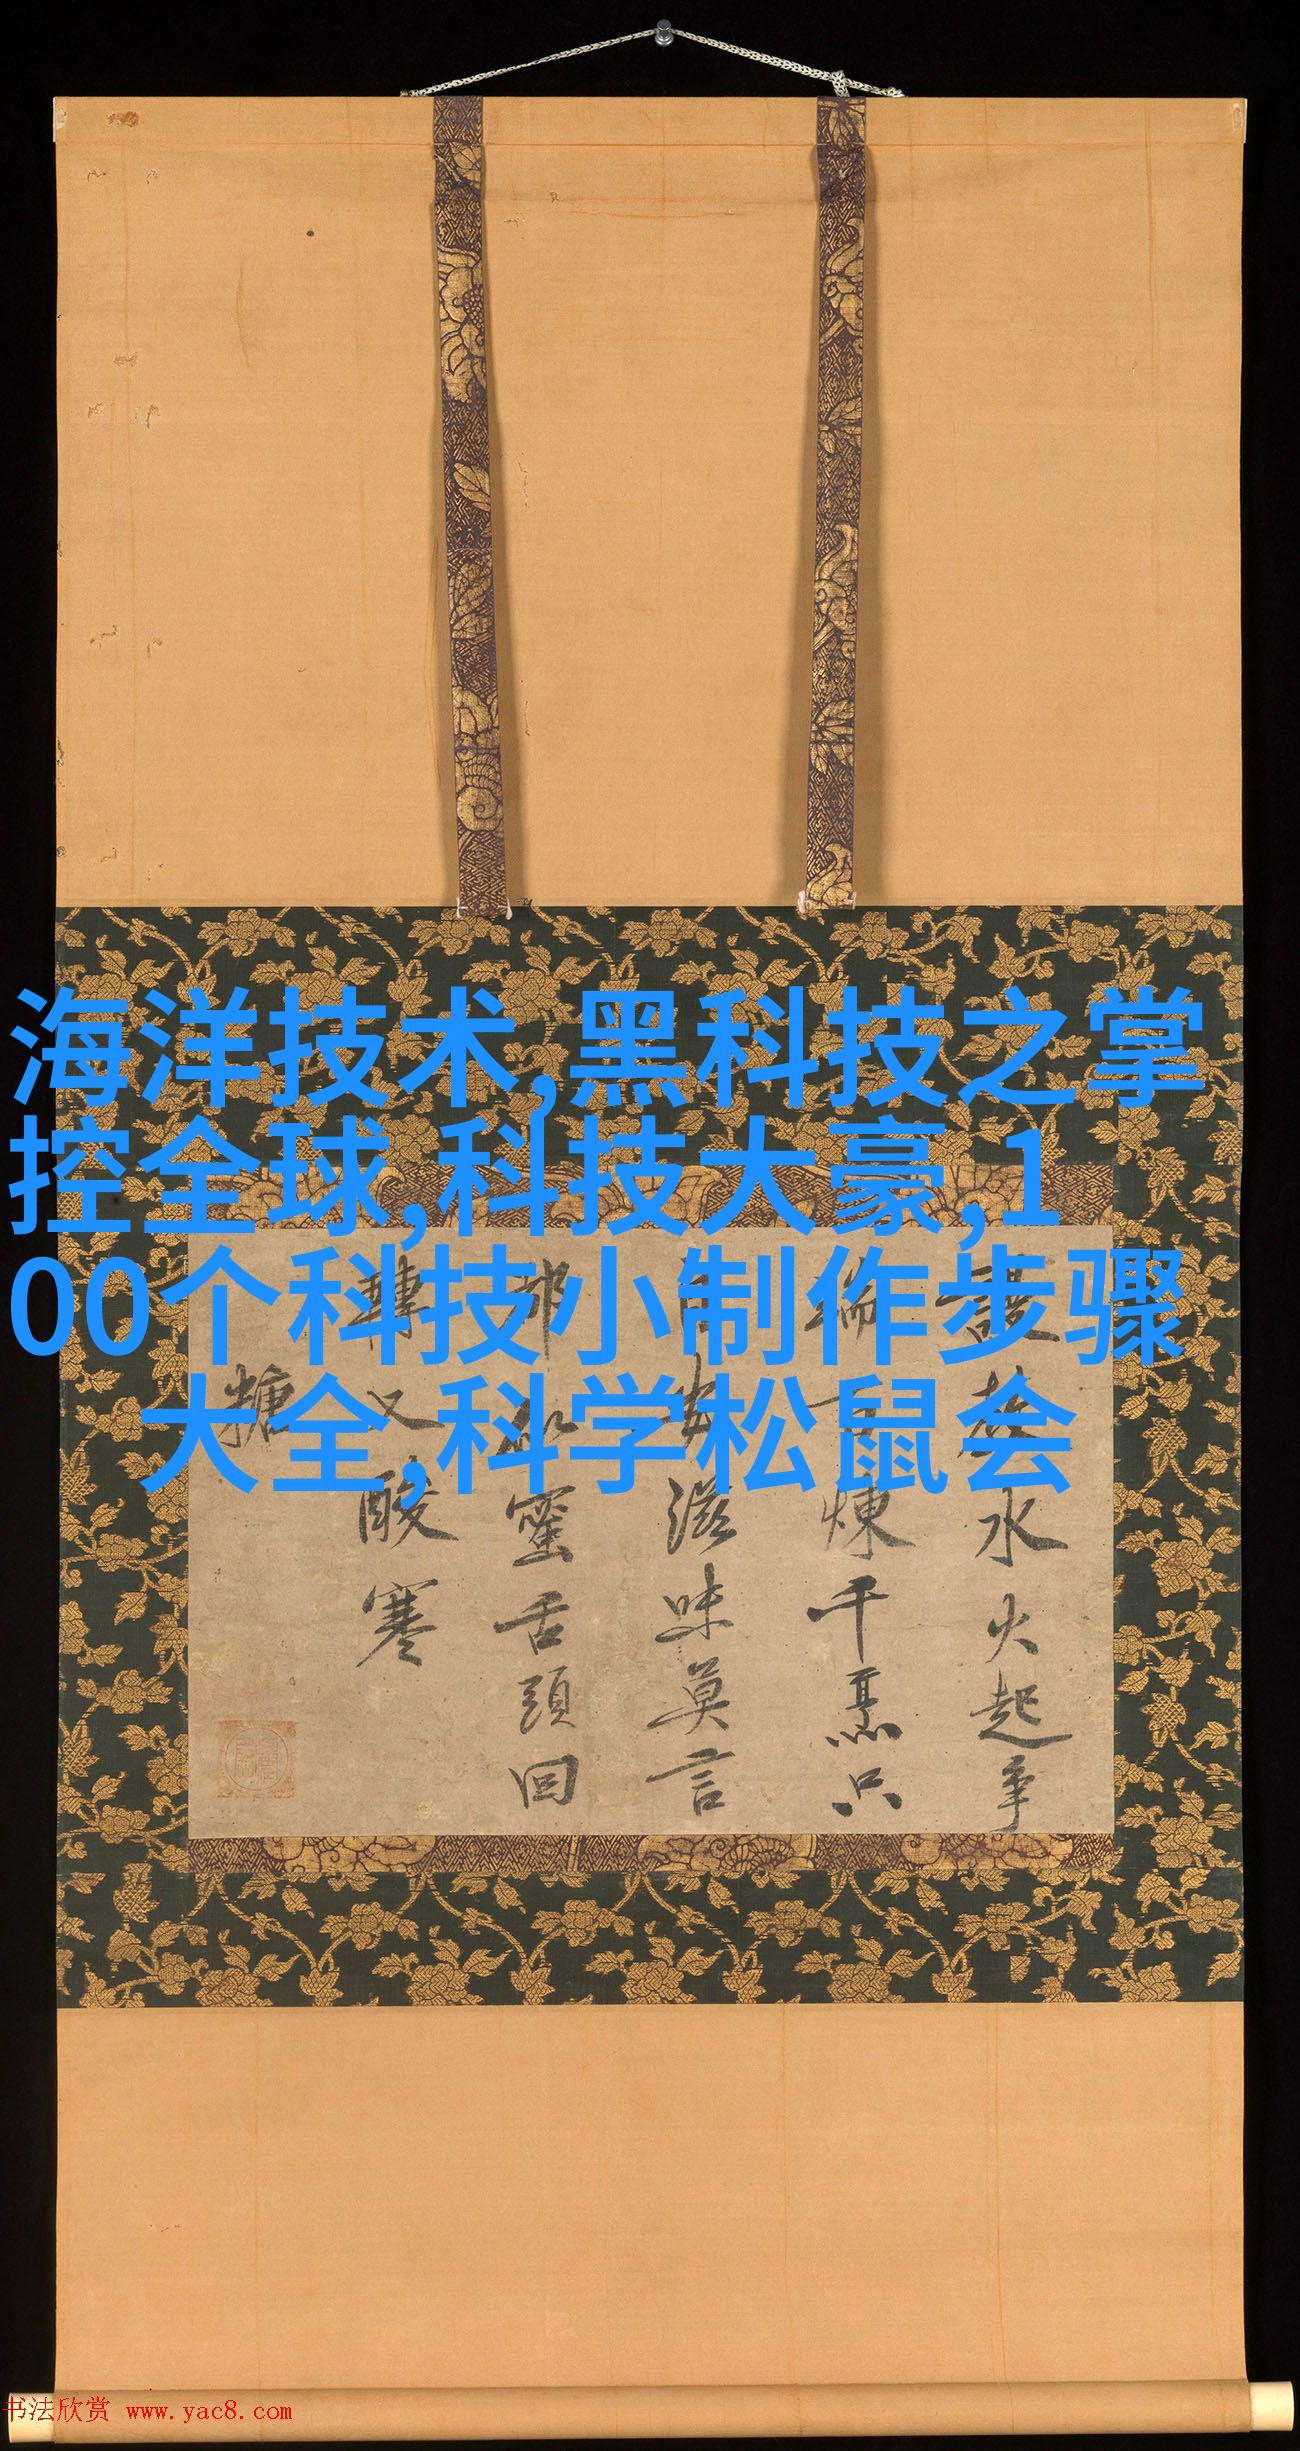 海洋技术,黑科技之掌
控全球,科技大豪,1
00个科技小制作步骤
大全,科学松鼠会
設水火起争
端百煉千烹只
滋味莫言
蜜舌頭回
轉又酸寒
糖
书法欣赏 www.yac8.com